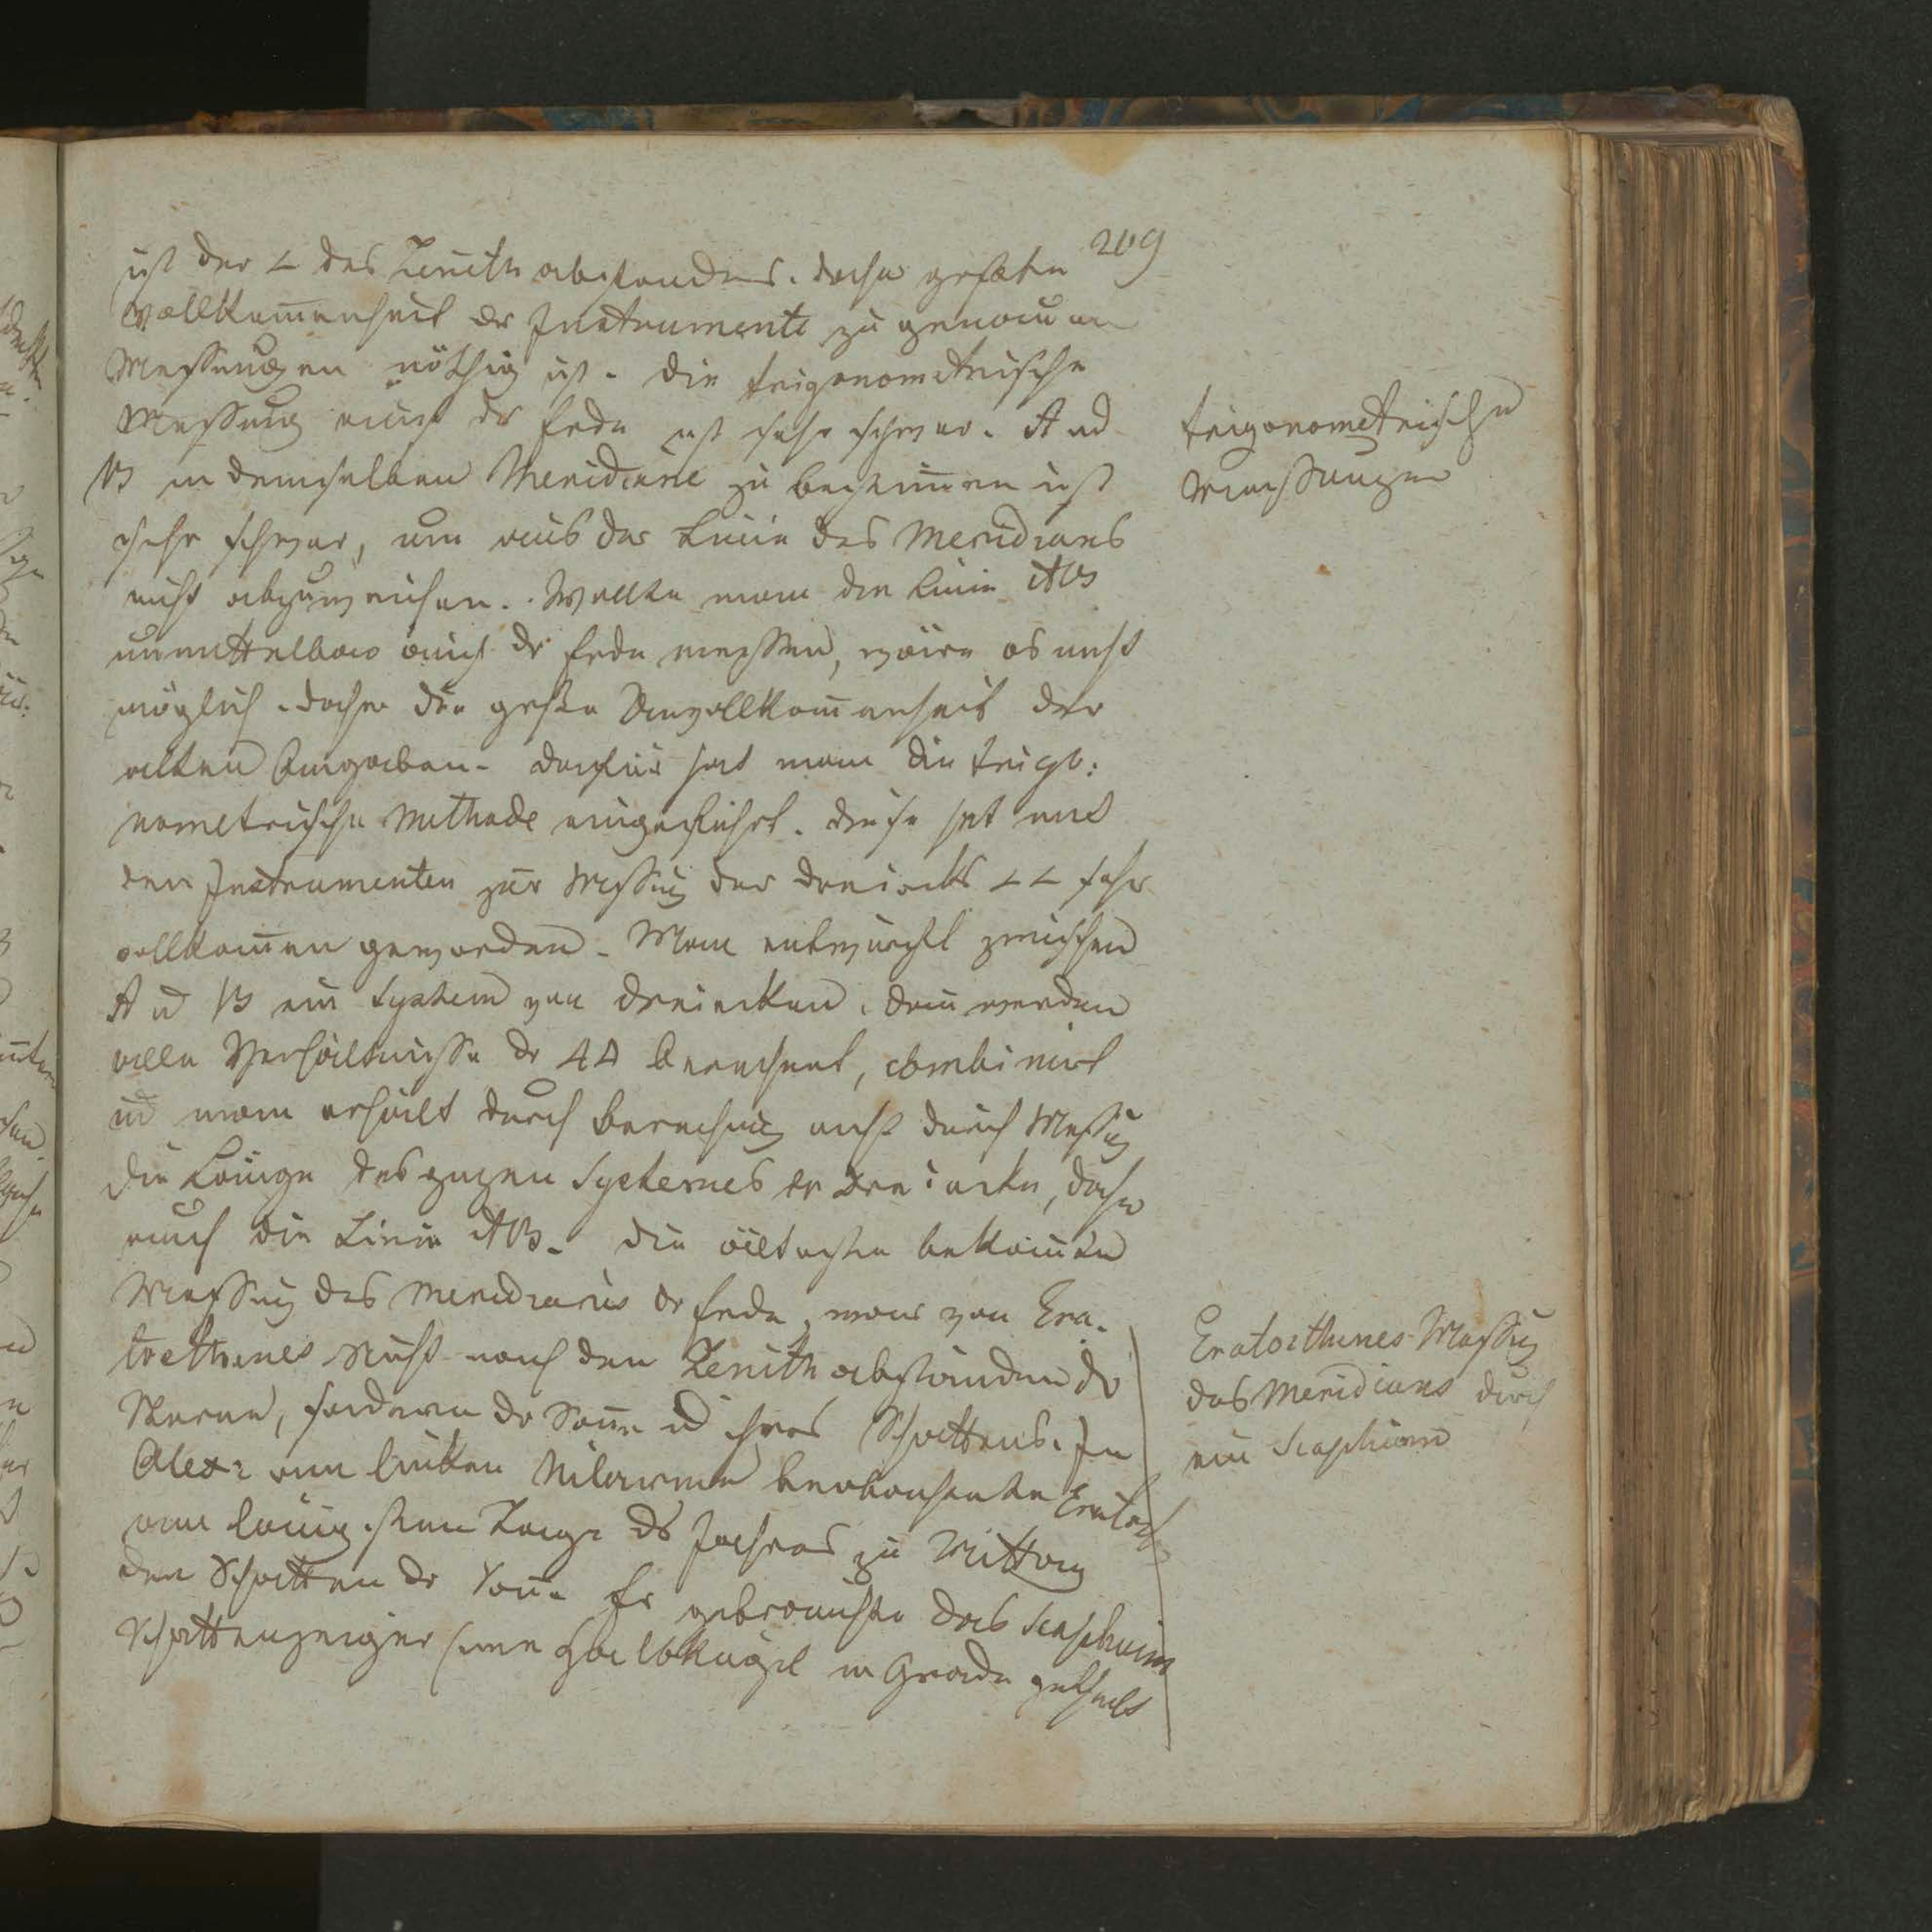 209
ist der ∠ des Zenith abstandes. daher große
Vollkom̅enheit der Instrumente zu genauen
Messungen nöthig ist. Die trigonometrische
Messung auf der Erde ist sehr schwer. A und
B in demselben Meridiane zu bestim̅en ist
sehr schwer, um aus der Linie des Meridians
nicht abzuweichen. Wollte man die Linie AB
unmittelbar auf der Erde messen, wäre es nicht
möglich. daher die große Unvollkom̅enheit der
alten Angaben. dafür hat man die trigo:
nometrische Methode eingeführt. diese ist mit
den Instrumenten zur Messung der Dreiecks ∠∠ sehr
vollkom̅en geworden. Man entwirft zwischen
A u B ein System von Dreiecken, dan̅ werden
alle Verhältnisse der ΔΔ berechnet, combinirt
ud man erhält durch Berechnung nicht durch Messung
die Länge des ganzen Systemes der Dreiecke, daher
auch die Linie AB. Die älteste bekan̅te
Messung des Meridians der Erde, war von Era-
tosthenes nicht nach den Zenith abständen der
Sterne, sondern der Son̅e ud ihres Schattens. In
Alex: am linken Nilarme beobachtete Eratosth
am läng.sten Tage des Jahres zu Mittag
den Schatten der Son̅e. Er gebrauchte das Scaphium
Schattenzeiger (eine Halbkugel in Grade getheilt
trigonometrische
Messungen
Eratosthenes Messung
des Meridians durch
ein Scaphium